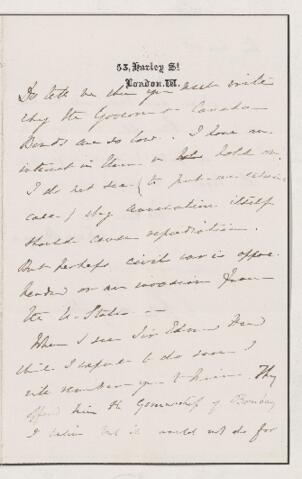 53, Harley St
London. W.
Do tell me when you next write
why the Government Canada
Bonds are so low. I have no
interest in them or hold on.
I do not see (to put an extreme
case) why annexation itself
should cause repudiation.
But perhaps civil war is appre-
hended or an invasion from
the U. States —
When I see Sir Edmund Head
which I expect to do soon I
will remember you to him. They
offered him the Governorship of Bombay
I believe but it would not do for